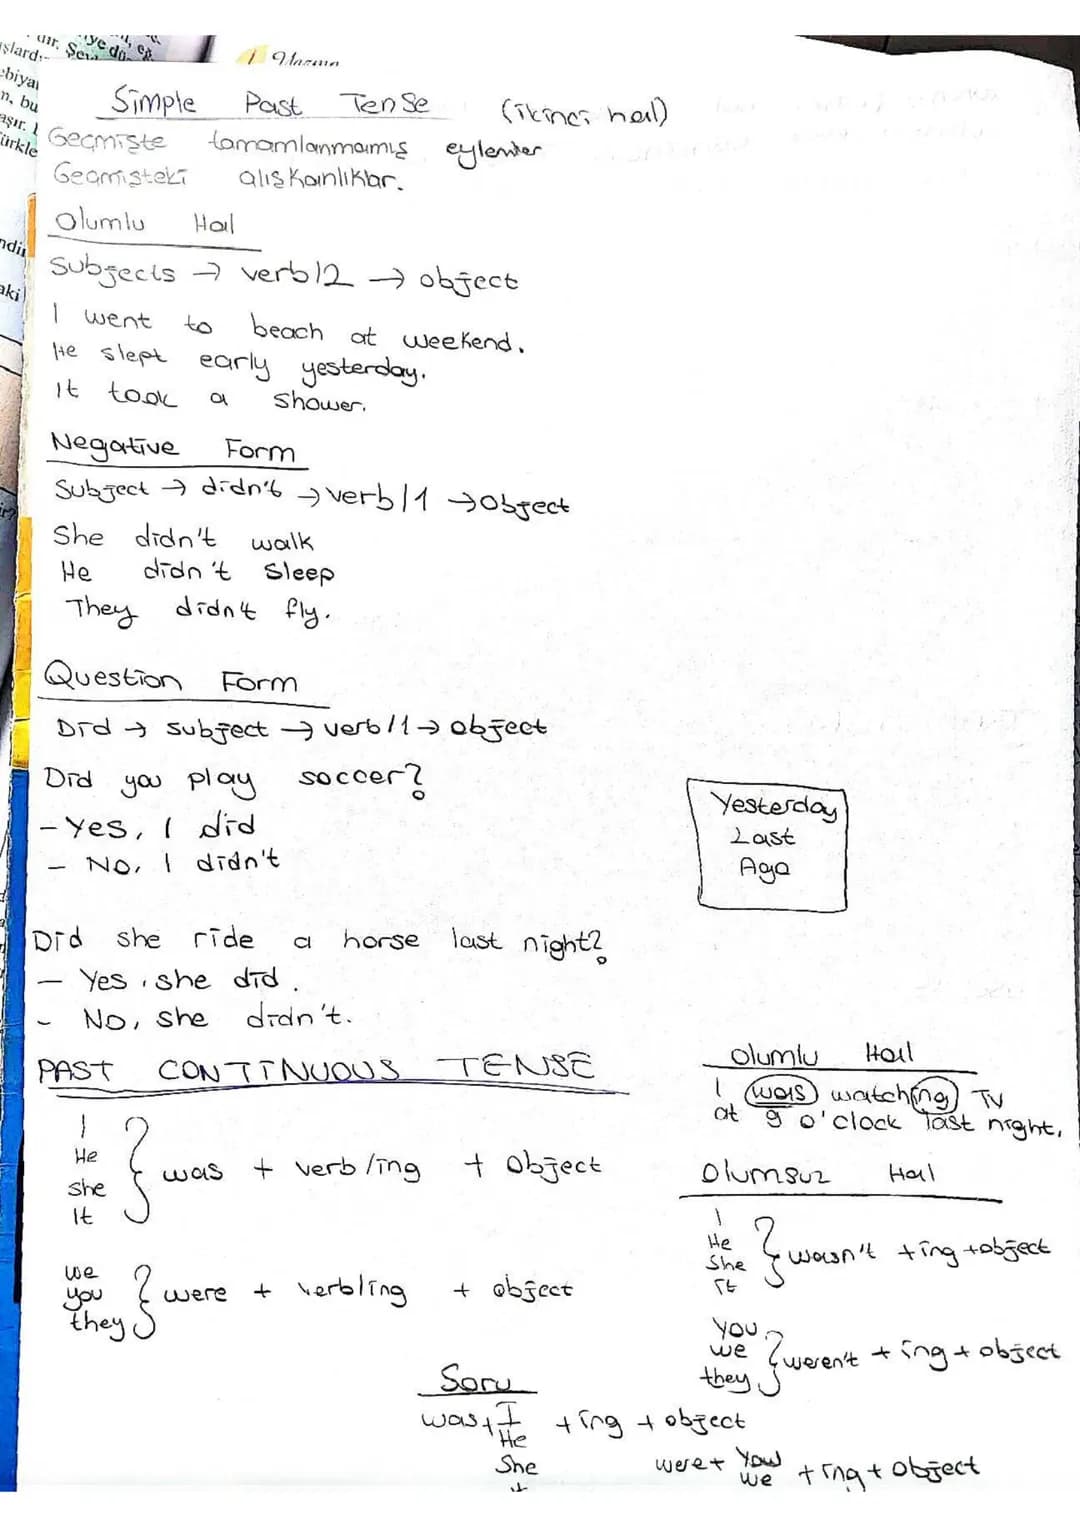 Simple Past Tense (ikinci hal)
Geçmişte tamamlanmamış eylemler
Geçmişteki alışkanlıklar.
Olumlu Hal
Subjects → verb/2 → object
I went to beach at weekend.
He slept early yesterday.
It took a shower.
Negative Form
Subject → didn't → verb/1 → object
She didn't walk
He didn't sleep
They didn't fly.
Question Form
Did → subject → verb/1 → object
Did you play soccer?
- Yes, I did
- No, I didn't
Yesterday
Last
Ago
Did she ride a horse last night?
- Yes, she did.
- No, she didn't.
PAST CONTINUOUS TENSE
I
He
she
It
was + verb/ing + object
we
you
they
were + verb/ing + object
Olumlu Hal
I was watching TV
at 9 o'clock last night.
Olumsuz Hal
I
He
She
It
wasn't + ing + object
You
we
they
weren't + ing + object
Soru
was + I + ing + object
He
She
were + You + ing + object
we